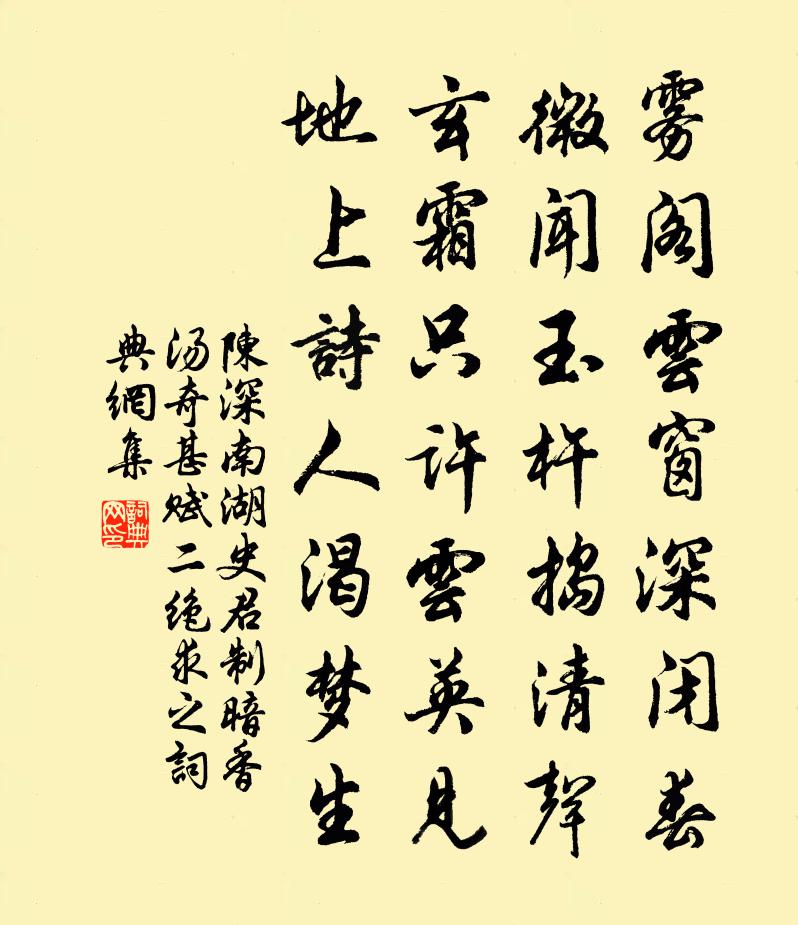 雾阁雲窗深闭春
微闻玉杵搗清聲
玄霜只許雲英見
地上詩人渴梦生
陳深南湖史君制暗香
汤奇甚赋二绝求之詞
典網集
詞典
网印